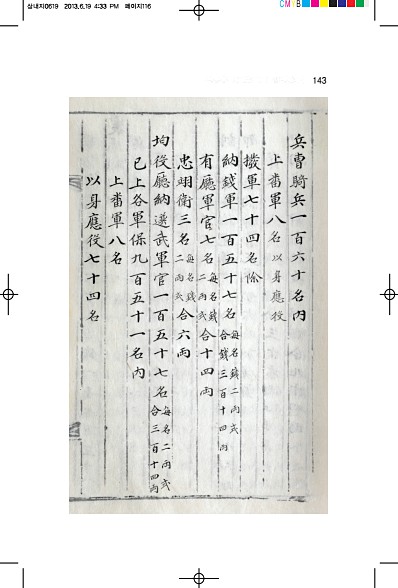 삼내지0619 2013.6.19 4:33 PM 페이지116
CMYB
143
兵曹騎兵一百六十名內
上番軍八名以身應役
撥軍七十四名除
納錢軍一百五十七名每名錢二兩式合錢三百十四兩
有廳軍官七名每名錢二兩式合十四兩
忠翊衛三名每名錢二兩式合六兩
均役廳納選武軍官一百五十七名每名二兩式合三百十四兩
已上各軍保九百五十一名內
上番軍八名
以身應役七十四名